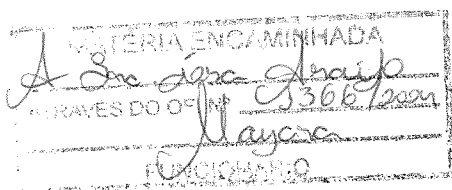 MATÉRIA ENCAMINHADA
A Sra
Araujo
ATRAVÉS DO OF. Nº 5366/2021
Mayara
FUNCIONÁRIO